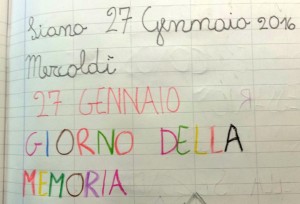 Siano 27 Gennaio 2016
Mercoldì
27 GENNAIO
GIORNO DELLA
MEMORIA